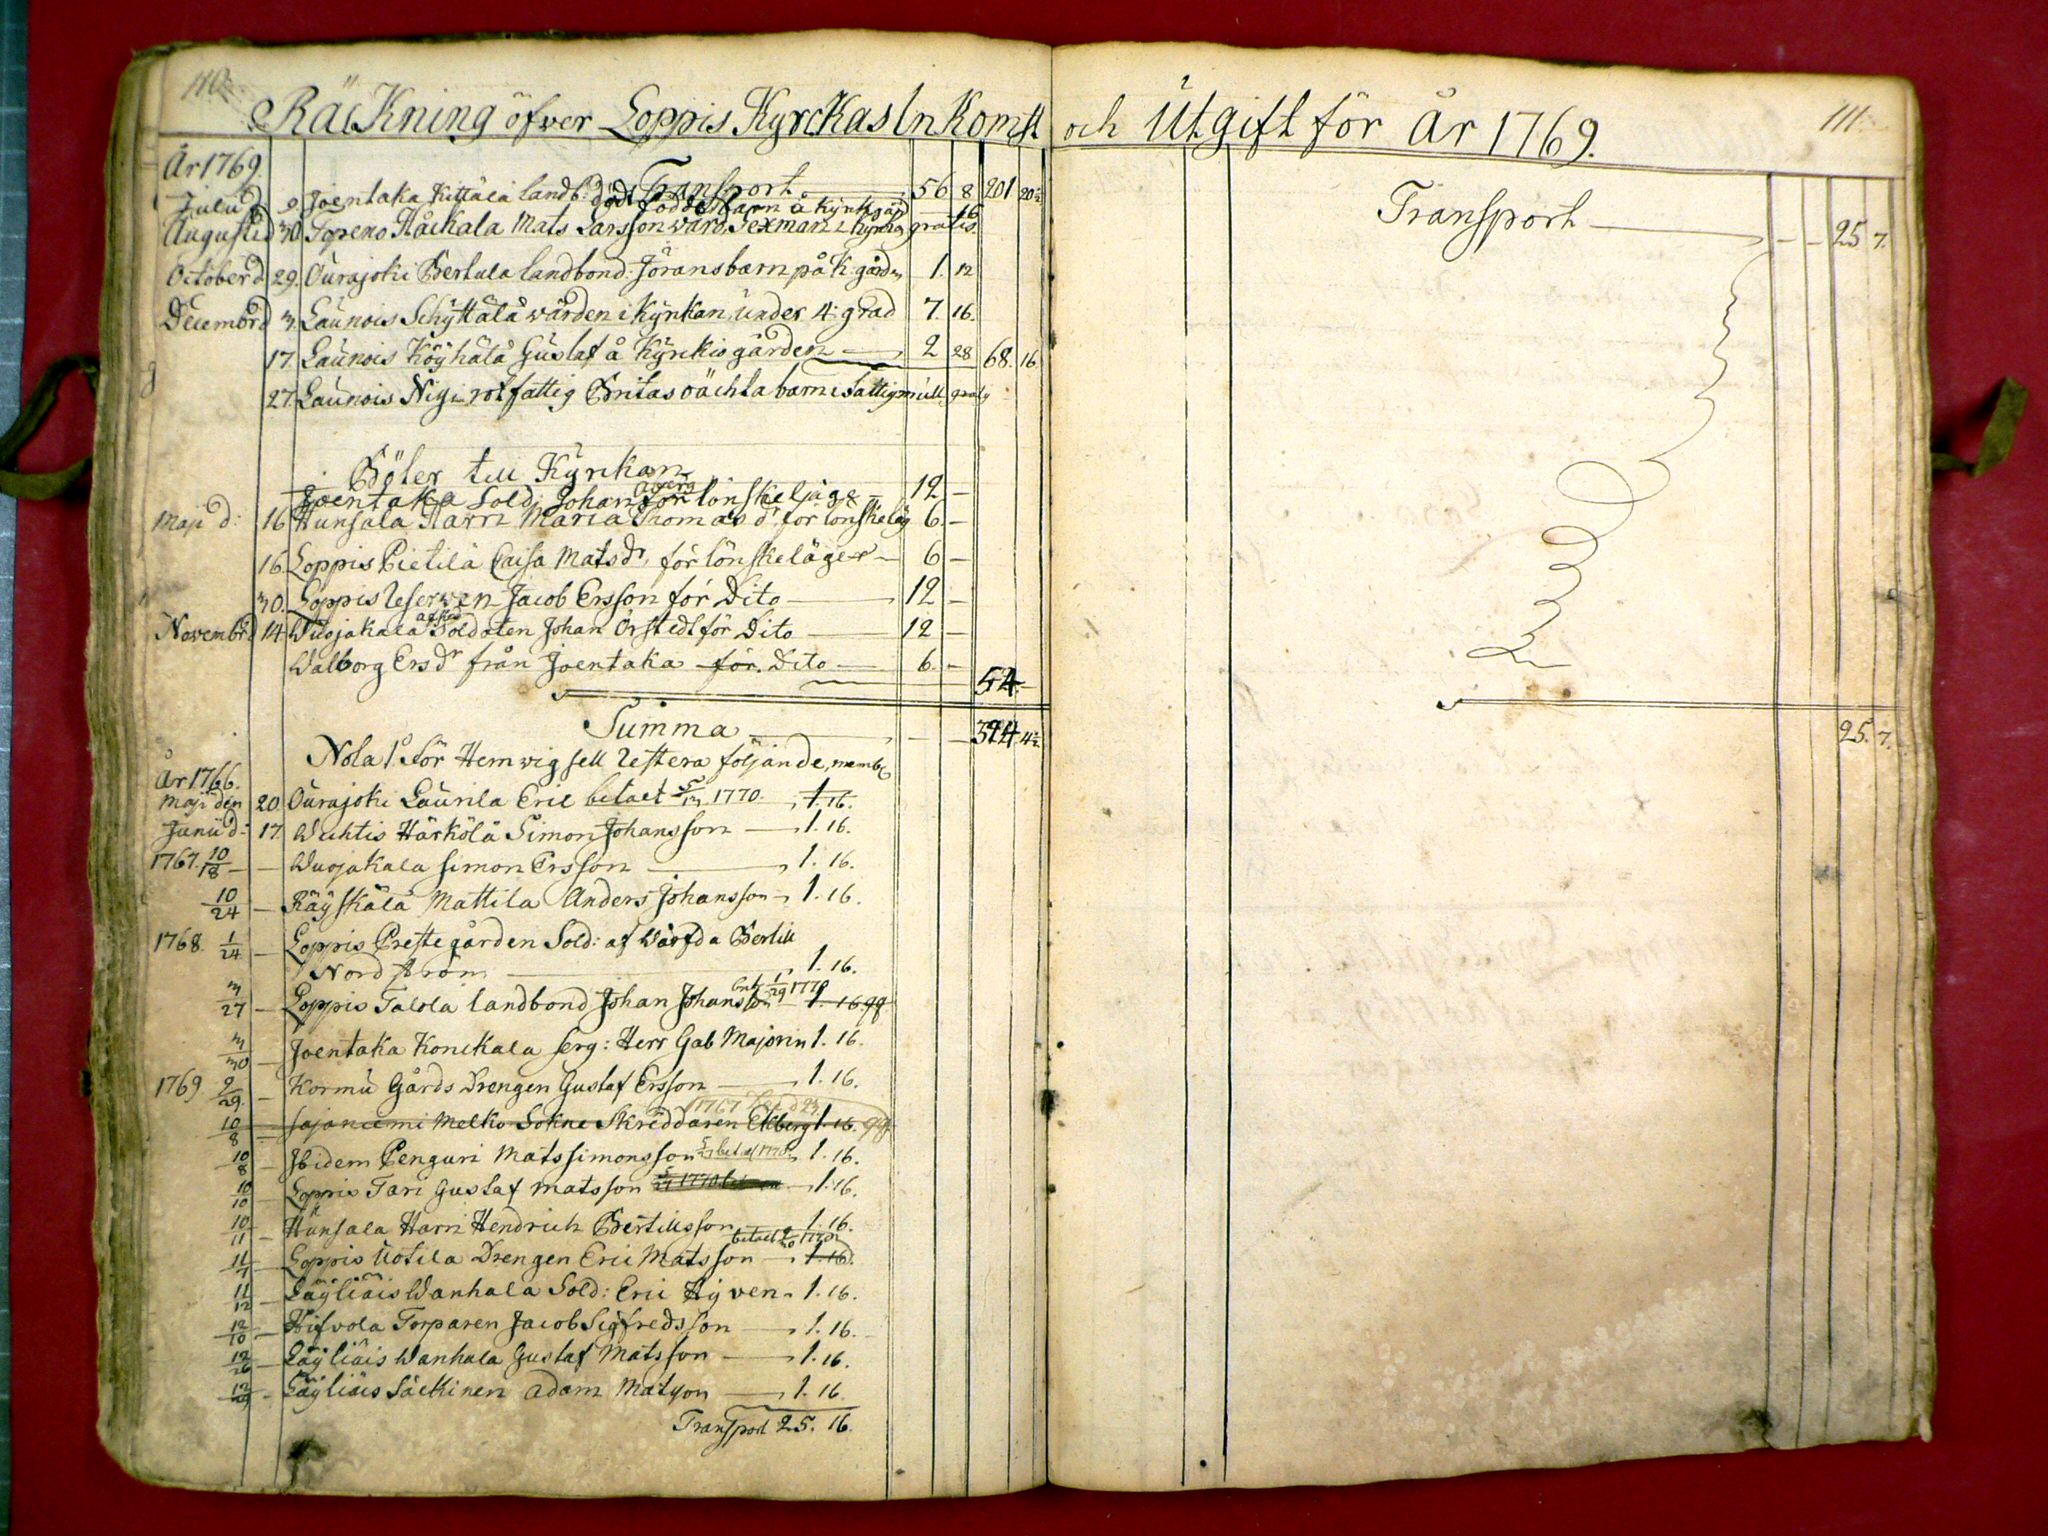 110.
Räckning öfver Loppis Kyrckas Inkomst och Utgift för År 1769.
111.
År 1769.
Transport 56 8 201 20½
Julii d. 9 Joentaka Kittälä landb: dödfödde barn å Kyrkgård 16
August d 30 Topeno Håckala Mats Larsson ward. Sexman i Kyrkog gratis.
October d 29. Ourajoki Bertula landbond: Jörans barn på K: gården 1. 12
Decembr d 3. Launois Schyttälä wården i Kyrkan under 4: grad 7. 16.
17. Launois Köyhälä Gustaf å Kyrckiogården 2 28 68. 16
27. Launois rotfattig Britas oächta barn i gratis
Böter till Kyrckan
Joentaka Sold: Johan för lönskeläge 12 —
Maji d: 16 Hunsala Harri Maria Thomas dr för lönskeläg 6. —
16. Loppis Pietilä Caisa Mats dr, för lönskeläger 6 —
30. Loppis Jacob Ersson för Dito 12 —
Novembr d 14 Wuojakala afsked Soldaten Johan Örstedt för Dito 12 —
Walborg Ers dr från Joentaka för. Dito 6. — 54. —
Summa — — 324. 4½
Nota 1o För Hemwigsell restera följande, nembl.
År 1766.
Maji den 20 Ourajoki Laurila Eric betalt 1770. 1. 16.
Junii d: 17. Wuhtis Härkälä Simon Johansson 1. 16.
1767. 10/18 — Wuojakala Simon Ersson 1. 16.
10/24 — Räyskälä Mattila Anders Johansson 1. 16.
1768. 1/24 — Loppis Prestegården Sold: af Värfda Bertill
Nordström 1. 16.
3/27 — Loppis Talola landbond Johan Johansson 1/29 1770 1. 16
3/30 — Joentaka Konckala Serg: Herr Gab Majorin 1. 16.
1769. 9/29. — Kormu Gårds Drengen Gustaf Ersson 1. 16.
1767
10/8 — Sajaniemi Melko Sokne Skreddaren Ekberg 1. 16.
10/8 — Ibidem Penguri Mats Simonsson betalt 1770 1. 16.
10/10 — Loppis Tari Gustaf Matsson 1770 1. 16.
10/11 — Hunsala Harri Hendrich Bertillsson 1. 16.
11/7 — Loppis Uotila Drengen Eric Matsson betalt 1770 1. 16.
11/12 — Läyliäis Wanhala Sold: Eric Hyven 1. 16.
12/10 — Hifvola Torparen Jacob Sigfredsson 1. 16.
12/26 — Läyliäis Wanhala Gustaf Matsson 1. 16.
12/ — Läyliäis Säckinen Adam Matsson 1. 16.
Transport 25. 16.
Transport — — 25 7.
25. 7.